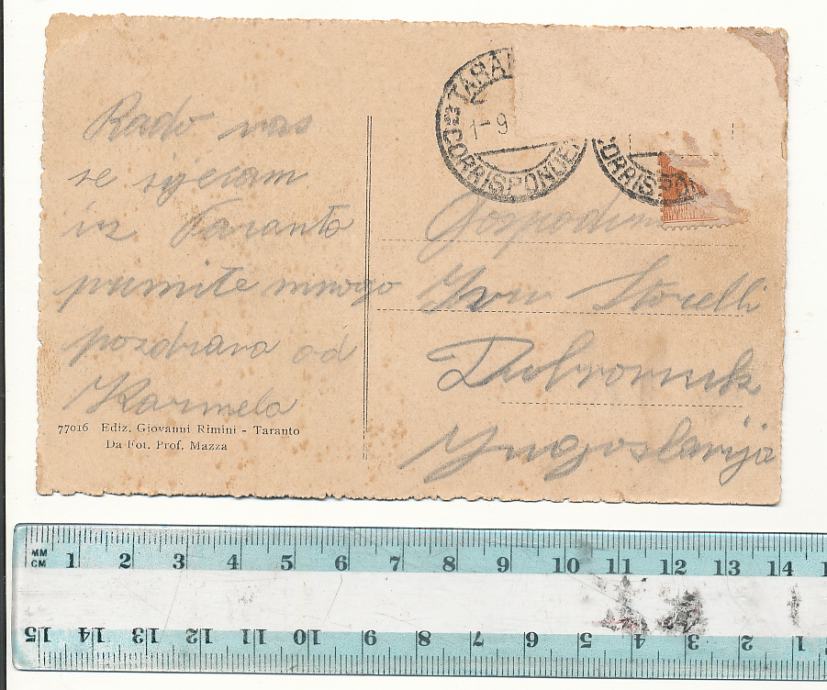 Rado vas
se sjećam
iz Taranto
primite mnogo
pozdrava od
Karmela
77016 Ediz. Giovanni Rimini - Taranto
Da Fot. Prof. Mazza
TARAN
1-9
CORRISPONDEN
CORRISPON
Gospodin
Ivu Storelli
Dubrovnik
Yugoslavija
MM
CM 1 2 3 4 5 6 7 8 9 10 11 12 13 14
15 14 13 12 11 10 9 8 7 6 5 4 3 2 1